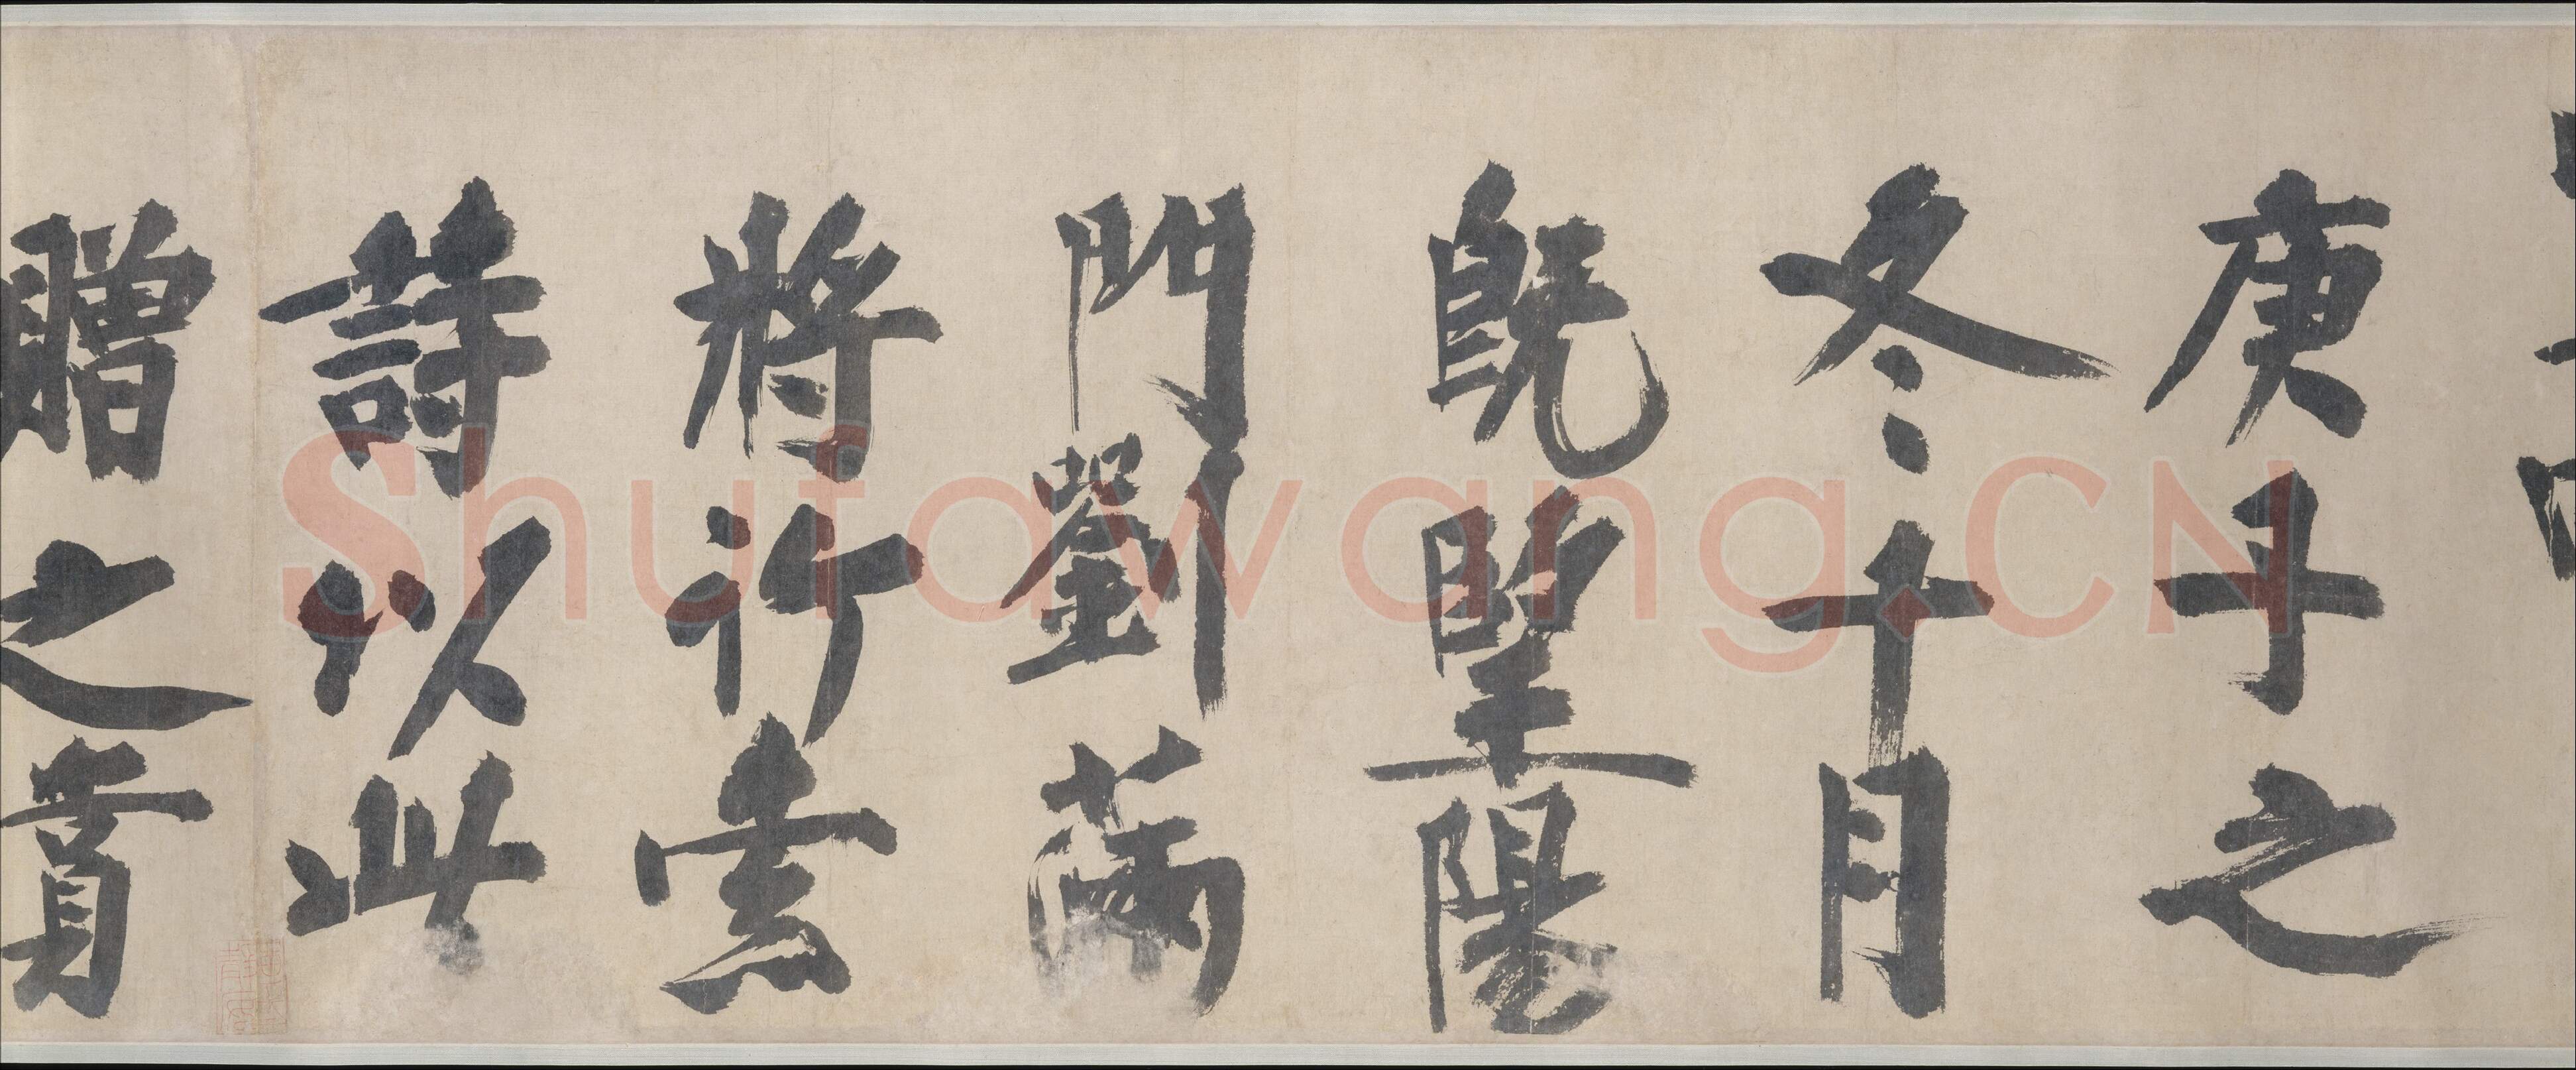 庚子之
冬十月
既朢陽
門劉滿
將行索
詩以此
贈之貢
Shufawang.CN